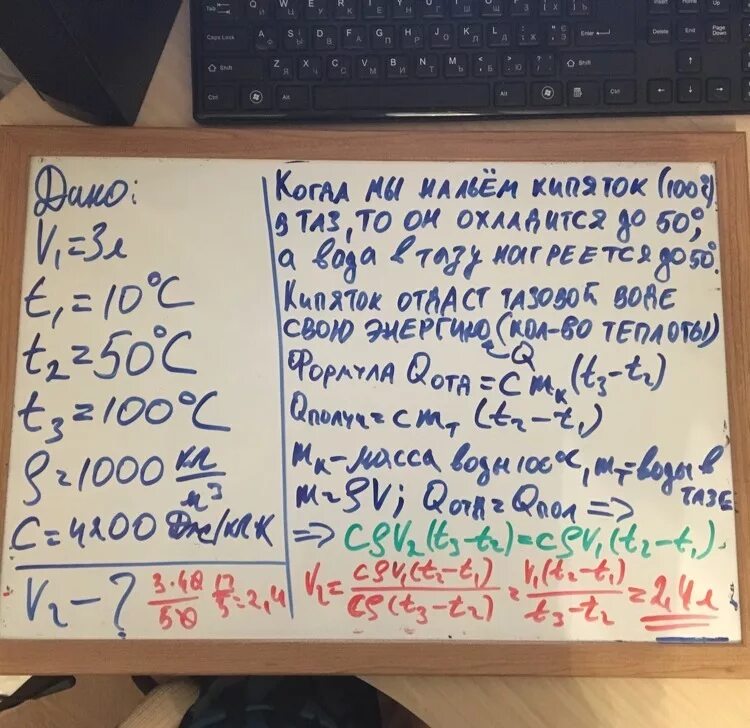 Дано:
V₁=3л
t₁=10°C
t₂=50°C
t₃=100°C
ρ=1000 кг/м³
C=4200 Дж/кг К
V₂-?
3·40/50 12/5=2,4
Когда мы нальём кипяток (100°)
в таз, то он охладится до 50°,
а вода в тазу нагреется до 50°.
Кипяток отдаст тазовой воде
свою энергию (кол-во теплоты)
Q
Формула Qотд=Cmк(t₃-t₂)
Qполуч=cmт(t₂-t₁)
mк-масса воды 100°, mт-воды в
тазе
m=ρV; Qотд=Qпол=>
=> CρV₂(t₃-t₂)=cρV₁(t₂-t₁)
V₂=CρV₁(t₂-t₁)/Cρ(t₃-t₂)=V₁(t₂-t₁)/t₃-t₂=2,4л